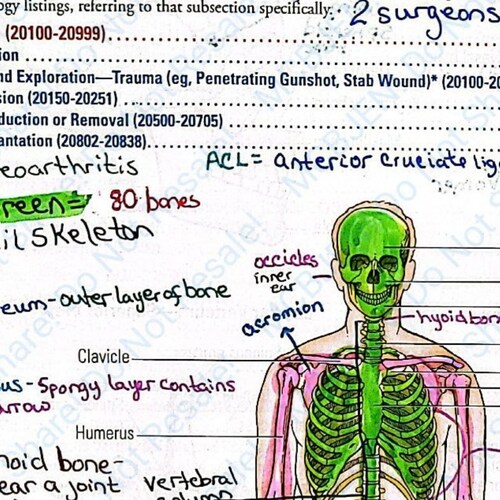 gy listings, referring to that subsection specifically.
2 surgeons
(20100-20999)
ion
nd Exploration—Trauma (eg, Penetrating Gunshot, Stab Wound)* (20100-20
sion (20150-20251)
duction or Removal (20500-20705)
antation (20802-20838)
eoarthritis
ACL = anterior cruciate lig
reen = 80 bones
il Skeleton
occicles
inner
ear
eum - outer layer of bone
acromion
hyoid bon
Clavicle
us - Spongy layer contains
arrow
Humerus
noid bone -
ear a joint
vertebral
column